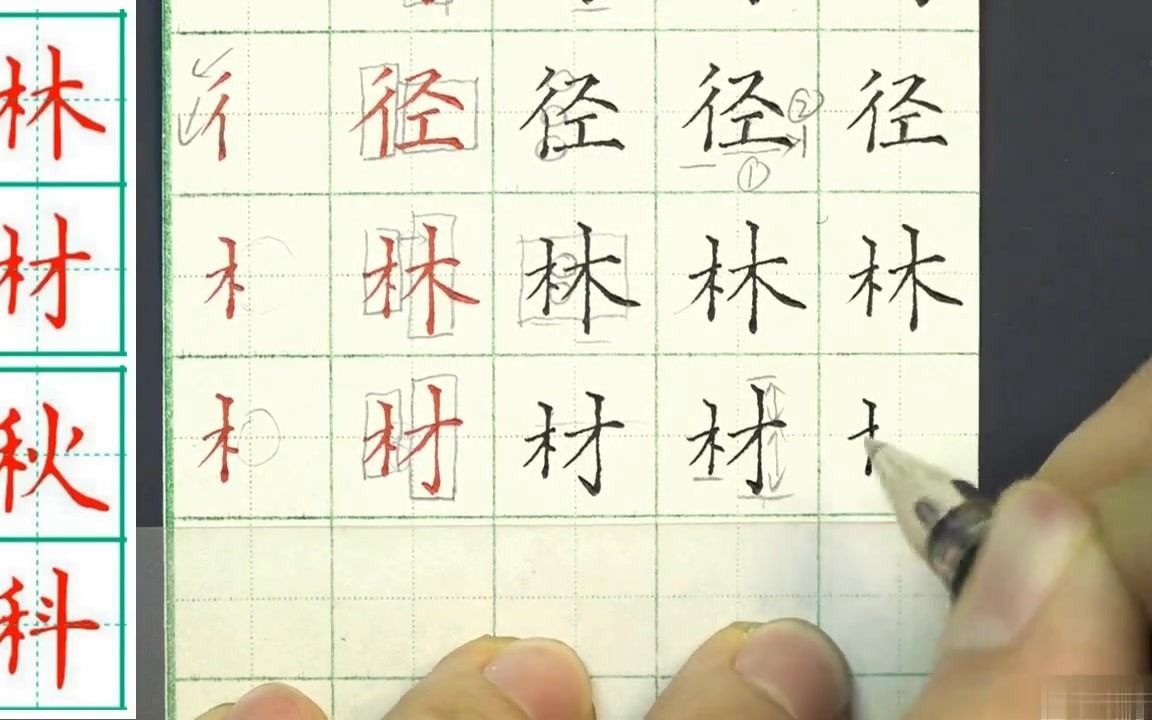 林
材
秋
科
彳 径 径 径 径
② ①
林 林 林 林
材 材 材